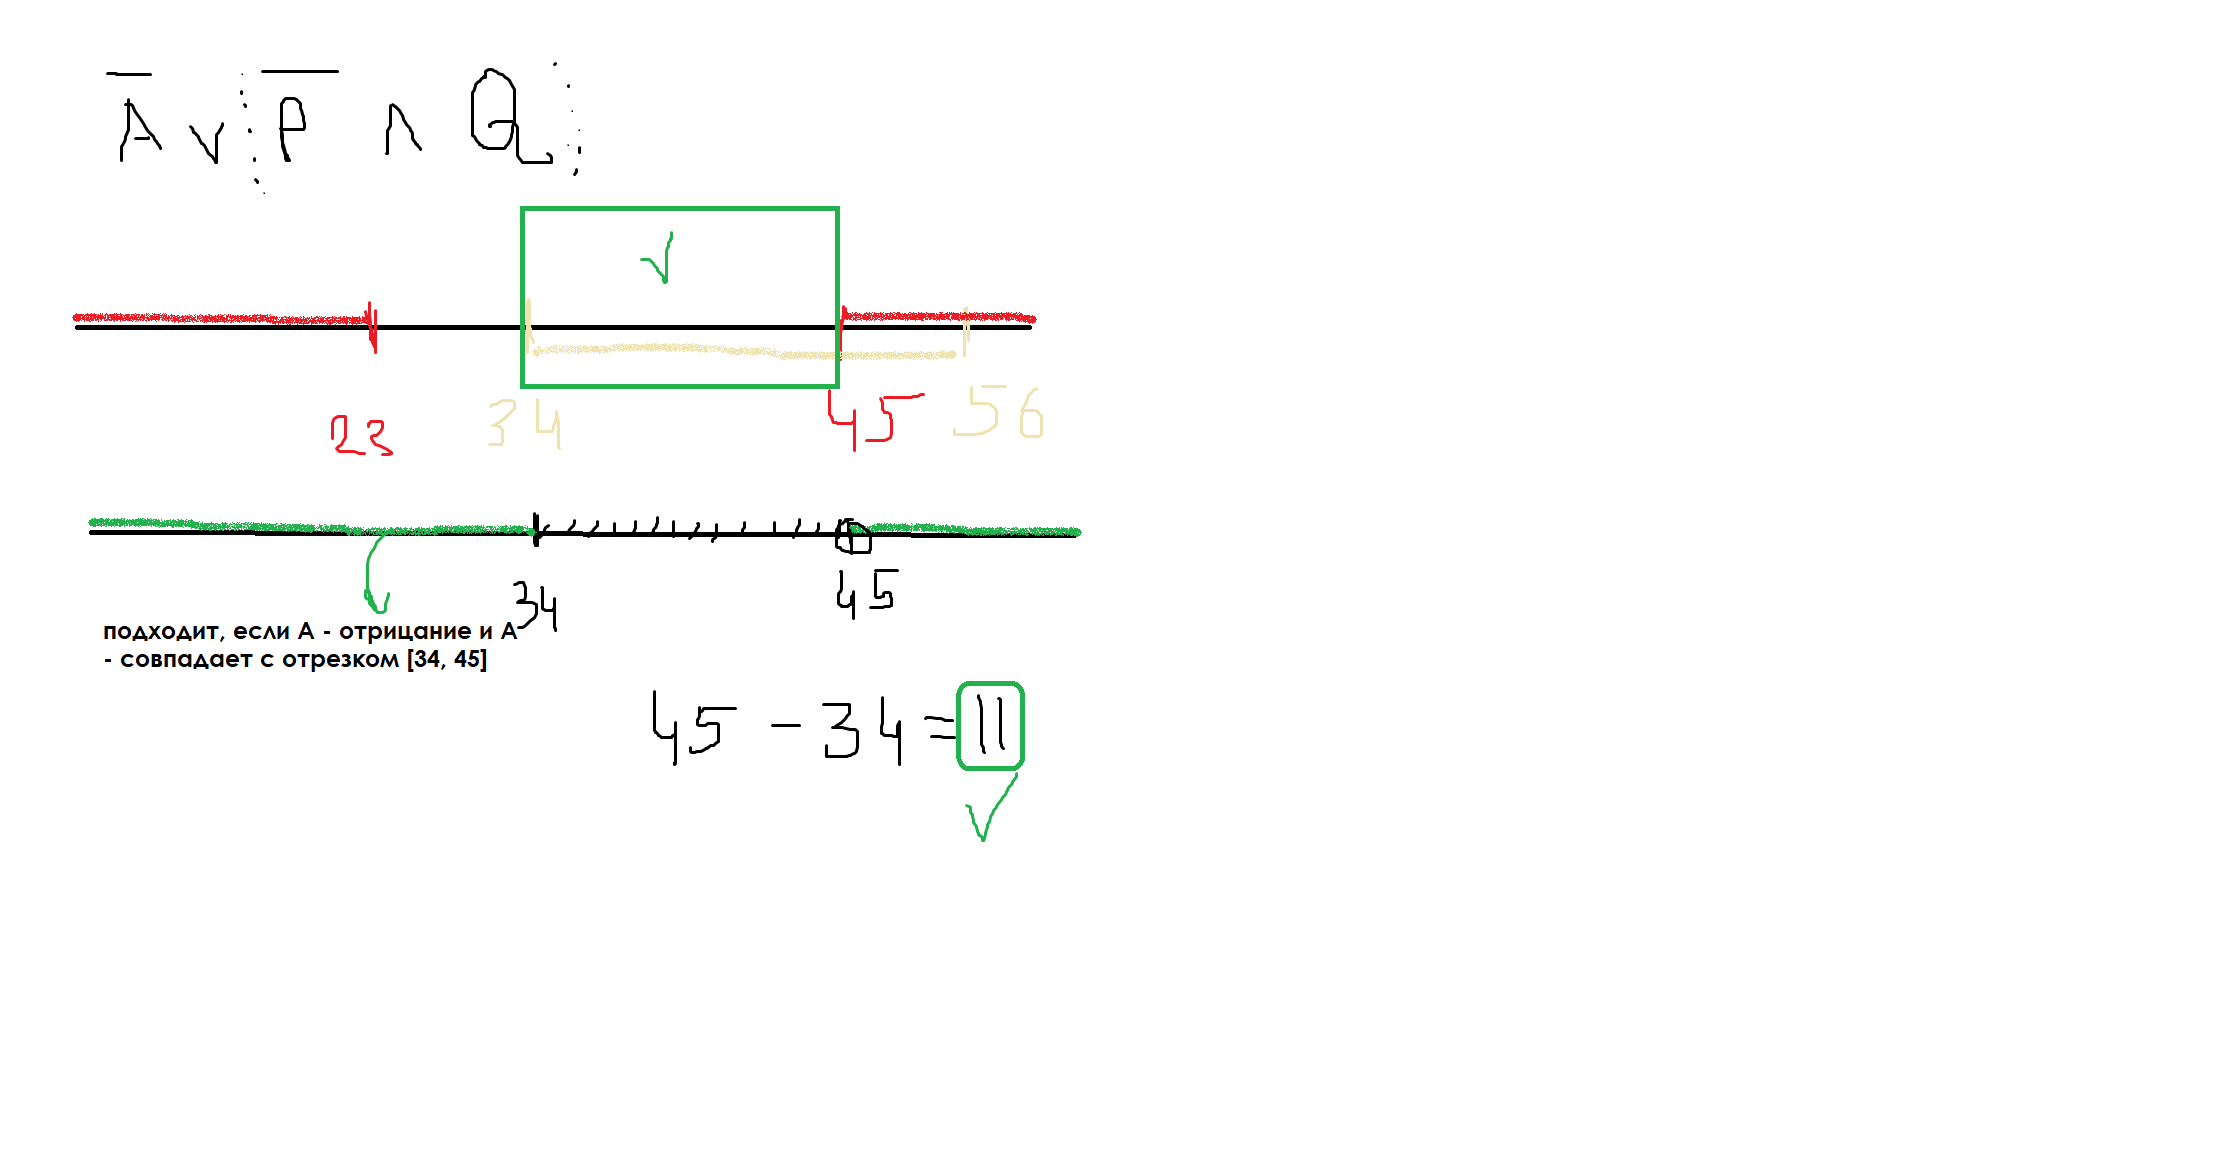 A̅ ∨ P̅ ∧ Q
23 34 45 56
34 45
подходит, если А - отрицание и А
- совпадает с отрезком [34, 45]
45 - 34 = 11